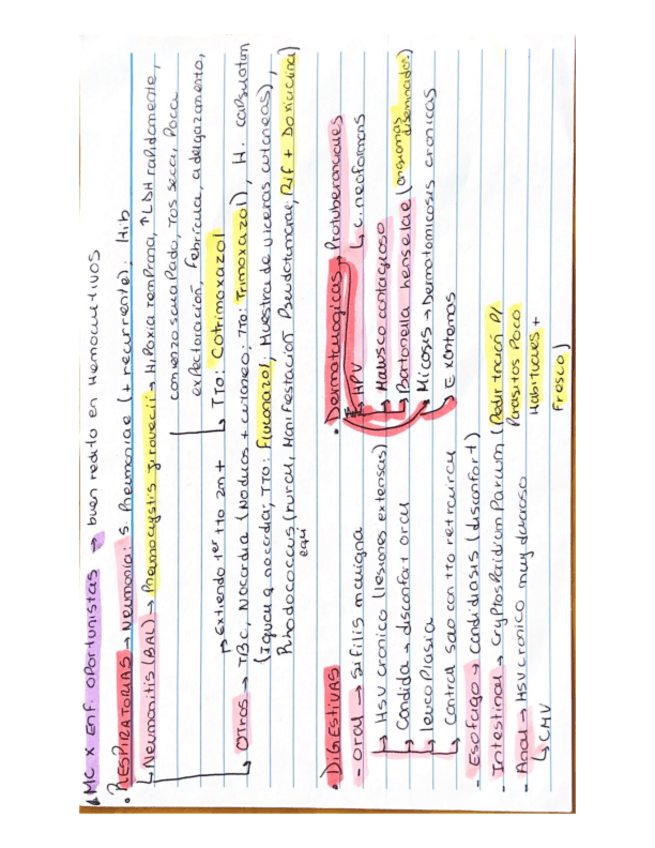 MC x Enf. oportunistas → buen redito en Hemocultivos
• RESPIRATORIAS → Neumonia: S. Pneumoniae (+ recurrente). Hib
↳ Neumonitis (BAL) → Pneumocystis jirovecii → Hipoxia temprana, ↑LDH rapidamente,
comienzo solapado, tos seca, poca
expectoración, febricula, adelgazamiento,
↳ TTO: Cotrimoxazol
→ Extiendo 1er tto 2m +
↳ OTROS → TBC, Nocardia (Nodulos + cutaneo; TTO: Trimoxazol), H. capsulatum
(Igual q nocardia; TTO: Fluconazol; Muestra de ulceras cutaneas),
Rhodococcus (rural, Manifestacion Pseudotumoral; Rif + Doxiciclina)
equi
• DIGESTIVAS
- Oral → Sifilis maligna
↳ HSV cronico (lesiones extensas)
↳ Candida → disconfort oral
↳ leucoplasia
↳ Control solo con tto retroviral
- Esofago → candidiasis (disconfort)
- Intestinal → Cryptosporidium Parvum (Pedir tinción p/
Parasitos Poco
Habituales +
Fresco)
- Anal → HSV cronico muy doloroso
↳ CMV
• Dermatologicas → Protuberanciales
↳ HPV
↳ C. neoformans
↳ Molusco contagioso
↳ Bartonella henselae (angiomas
diseminados)
↳ Micosis → Dermatomicosis cronicas
↳ Exantemas